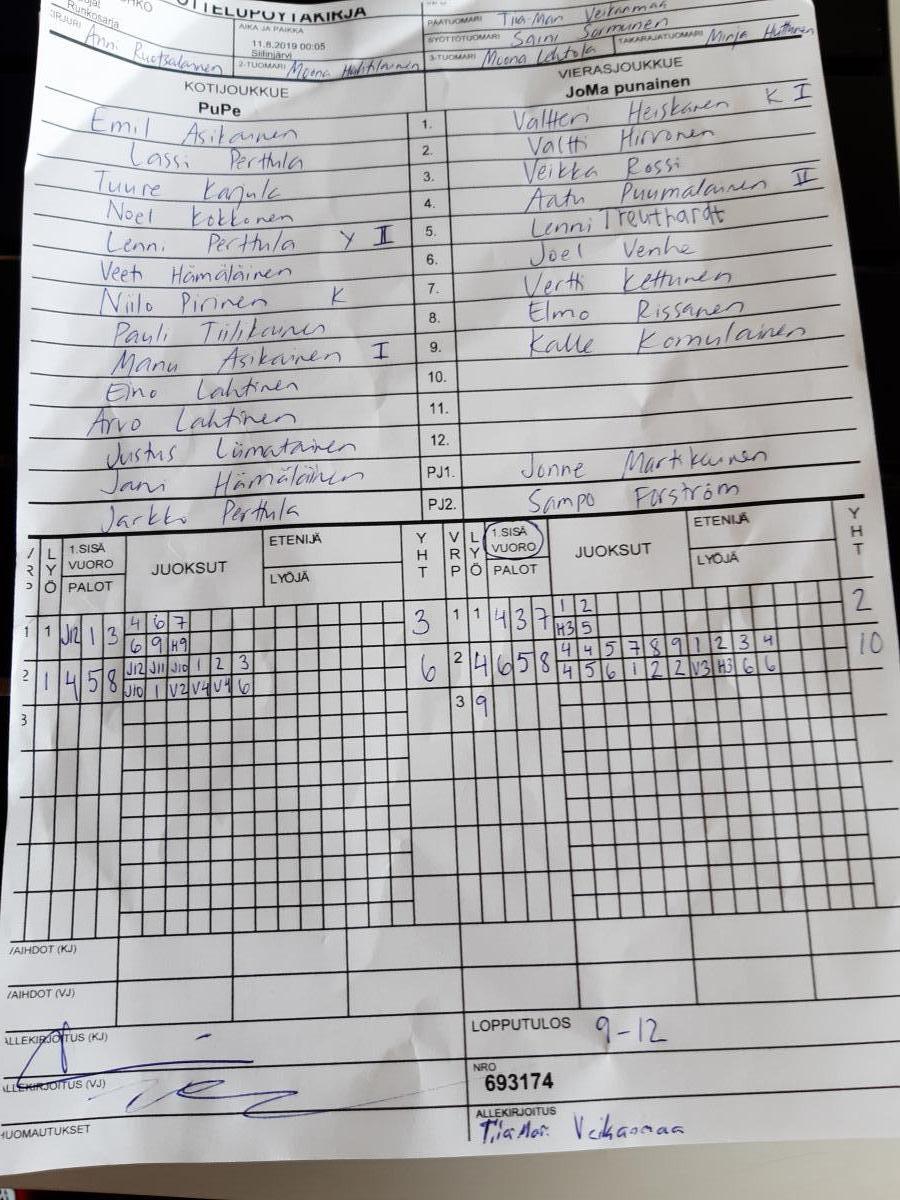 OTTELUPÖYTÄKIRJA
Runkosarja
Anni Ruotsalainen
AIKA JA PAIKKA
11.8.2019 00:05
Siilinjärvi
2-TUOMARI Moona
PÄÄTUOMARI Tiia-Mari Veikanmaa
SYÖTTÖTUOMARI Saini Sormunen
3-TUOMARI Moona Lehtola TAKARAJATUOMARI Mirja Huttunen
KOTIJOUKKUE VIERASJOUKKUE
PuPe JoMa punainen
Emil Asikainen 1. Valtteri Heiskanen K I
Lassi Perttula 2. Valtti Hirvonen
Tuure Karjula 3. Veikka Rossi
Noel Kokkonen 4. Aatu Puumalainen II
Lenni Perttula Y II 5. Lenni Treuthardt
Veeti Hämäläinen 6. Joel Venhe
Niilo Pirinen K 7. Vertti Kettunen
Pauli Tiilikainen 8. Elmo Rissanen
Manu Asikainen I 9. Kalle Komulainen
Eino Lahtinen 10.
Arvo Lahtinen 11.
Justus Liimatainen 12.
Jani Hämäläinen PJ1. Jonne Martikainen
Jarkko Perttula PJ2. Sampo Forström
LYÖ 1.SISÄ VUORO PALOT JUOKSUT ETENIJÄ LYÖJÄ YHT VRP LYÖ 1.SISÄ VUORO PALOT JUOKSUT ETENIJÄ LYÖJÄ YHT
1 1 J12 1 3 4 6 7 3 1 1 4 3 7 1 2 2
6 9 H9 H3 5
2 1 4 5 8 J12 J11 J10 1 2 3 6 2 4 6 5 8 4 4 5 7 8 9 1 2 3 4 10
J10 1 V2 V4 V4 6 4 5 6 1 2 2 V3 H3 6 6
3 3 9
VAIHDOT (KJ)
VAIHDOT (VJ)
ALLEKIRJOITUS (KJ)
LOPPUTULOS 9-12
ALLEKIRJOITUS (VJ)
NRO
693174
HUOMAUTUKSET
ALLEKIRJOITUS
Tiia Mari Veikanmaa